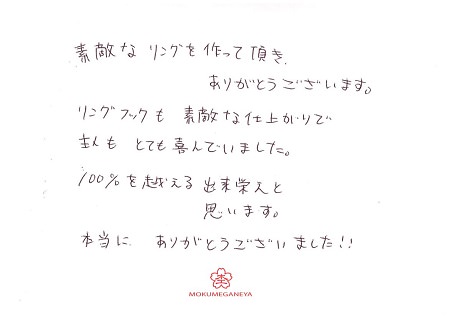 素敵な リングを作って頂き、
ありがとうございます。
リングフックも 素敵な仕上がりで
主人も とても喜んでいました。
100%を越える 出来栄えと
思います。
本当に ありがとうございました!!
MOKUMEGANEYA